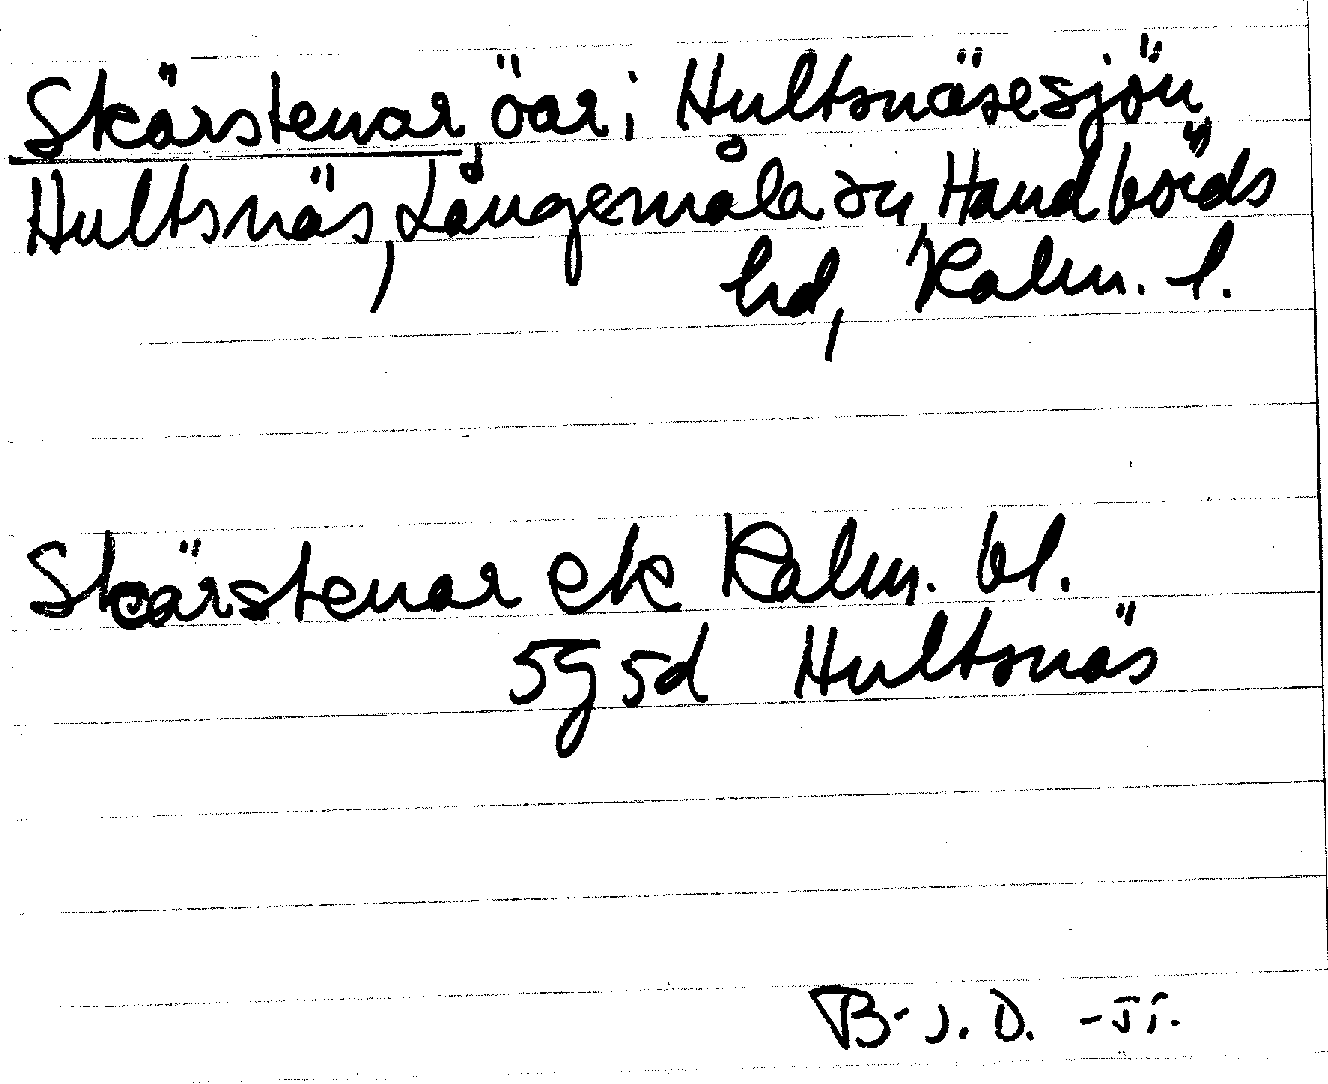 Skärstenar, öar i Hultsnäsesjön
Hultsnäs, Långemåla sn, Handbörds
hd, Kalm. l.
Skärstenar ek Kalm. bl.
5g 5d Hultsnäs
B-J. D.